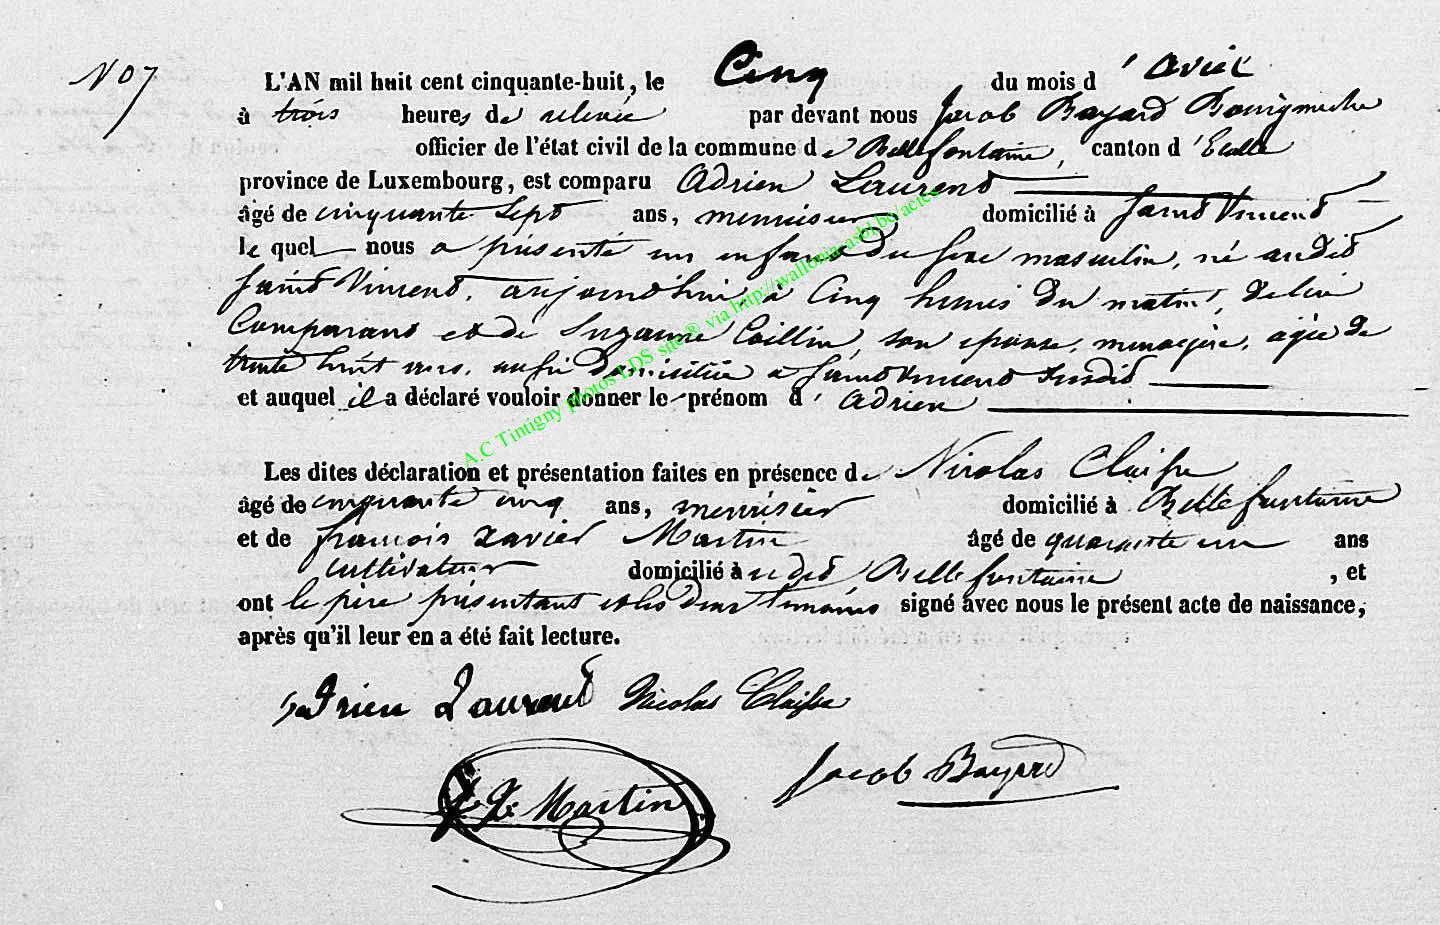 N° 7
L'AN mil huit cent cinquante-huit, le Cinq du mois d'avril
à trois heures de relevée par devant nous Jacob Bayard Bourgmestre
officier de l'état civil de la commune de Bellefontaine, canton d'Etalle
province de Luxembourg, est comparu Adrien Laurent
âgé de cinquante sept ans, menuisier domicilié à Saint Vincent
le quel nous a présenté un enfant du sexe masculin, né audit
Saint Vincent, aujourd'hui à Cinq heures du matin, de lui
Comparant et de Suzanne Collin, son épouse, menagère, agée de
trente huit ans, aussi domiciliée à Saint Vincent susdit
et auquel il a déclaré vouloir donner le prénom d'Adrien
Les dites déclaration et présentation faites en présence de Nicolas Claisse
âgé de cinquante cinq ans, menuisier domicilié à Bellefontaine
et de françois Xavier Martin âgé de quarante un ans
cultivateur domicilié à udit Bellefontaine, et
ont le père présentant et les deux témoins signé avec nous le présent acte de naissance,
après qu'il leur en a été fait lecture.
Adrien Laurent Nicolas Claisse
f. X. Martin Jacob Bayard
A.C Tintigny photos LDS site® via http://wallonia-asbl.be/actes